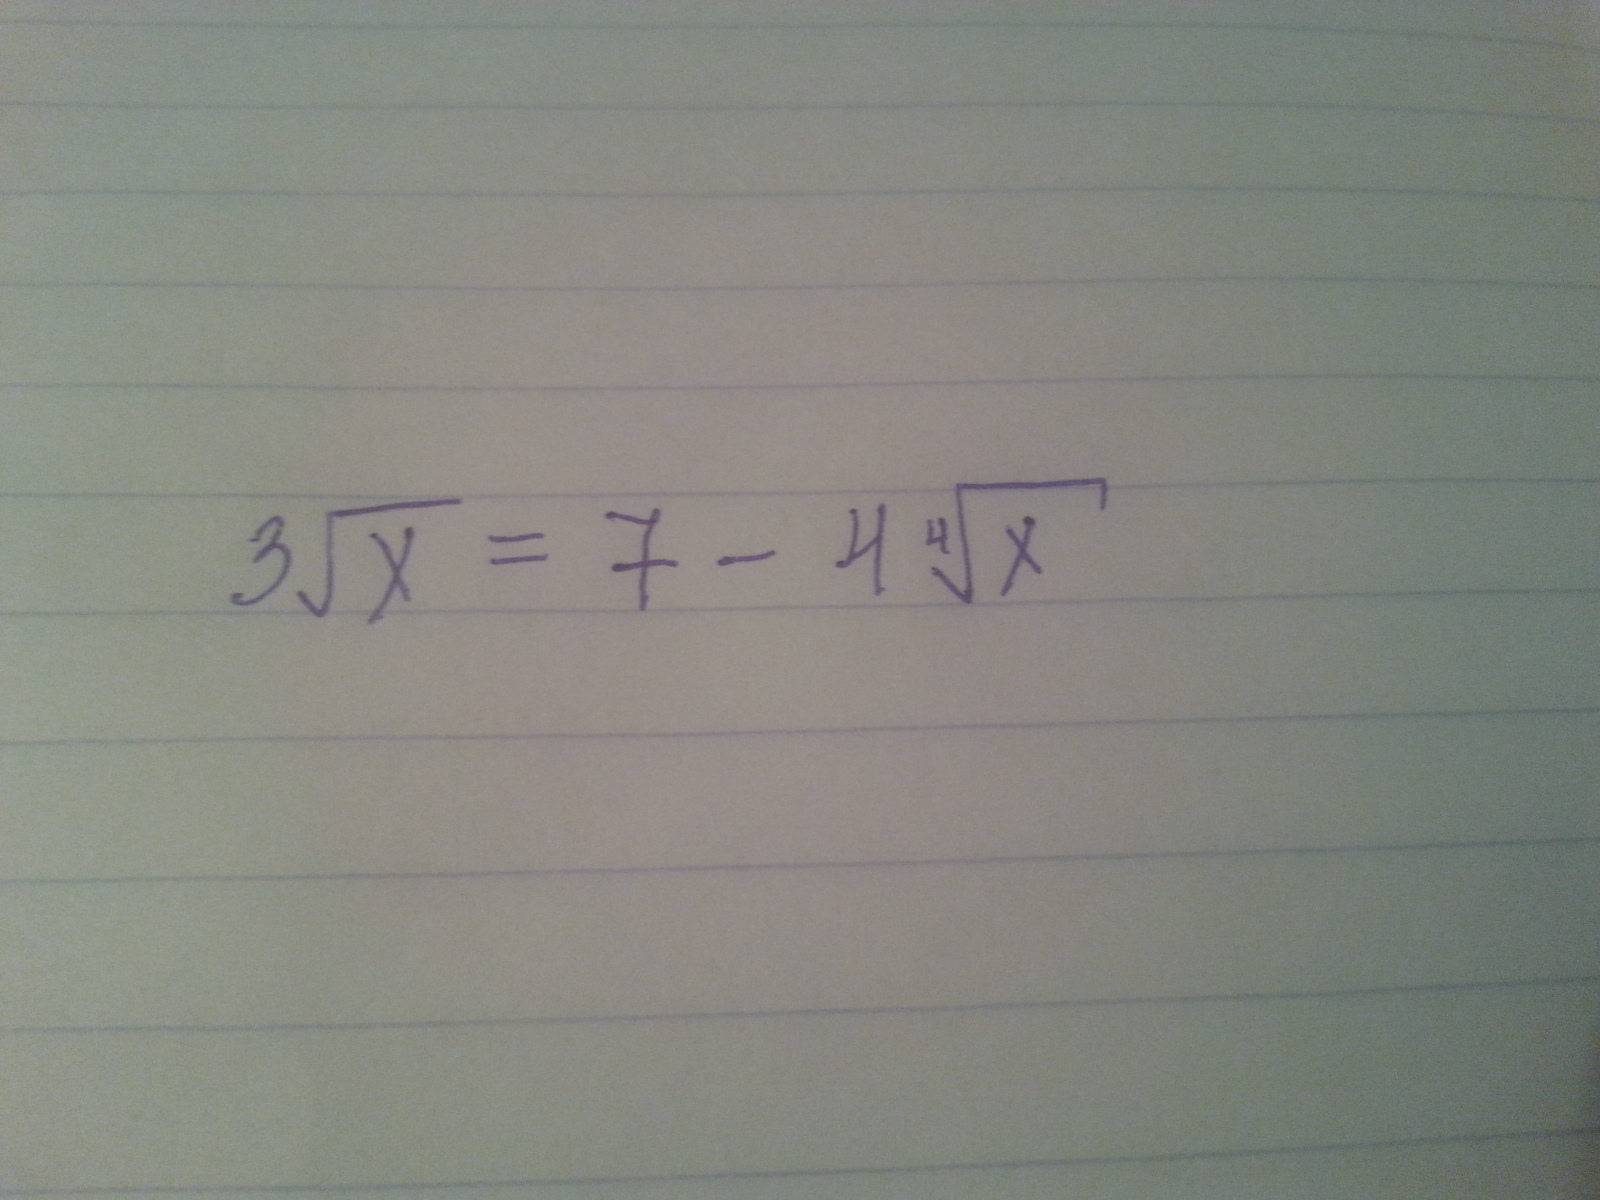 3√x = 7 - 4 ∜x